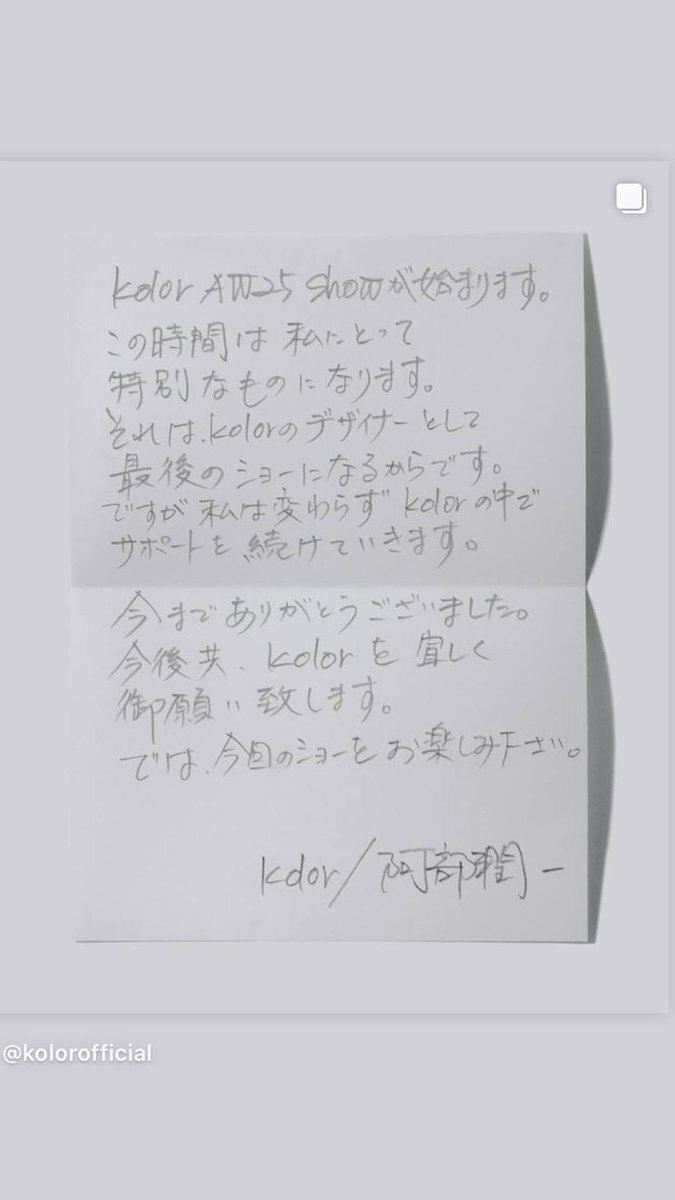 kolor AW25 showが始まります。
この時間は私にとって
特別なものになります。
それは、kolorのデザイナーとして
最後のショーになるからです。
ですが私は変わらずkolorの中で
サポートを続けていきます。
今までありがとうございました。
今後共、kolorを宜しく
御願い致します。
では、今回のショーをお楽しみ下さい。
kolor/阿部潤一
@kolorofficial